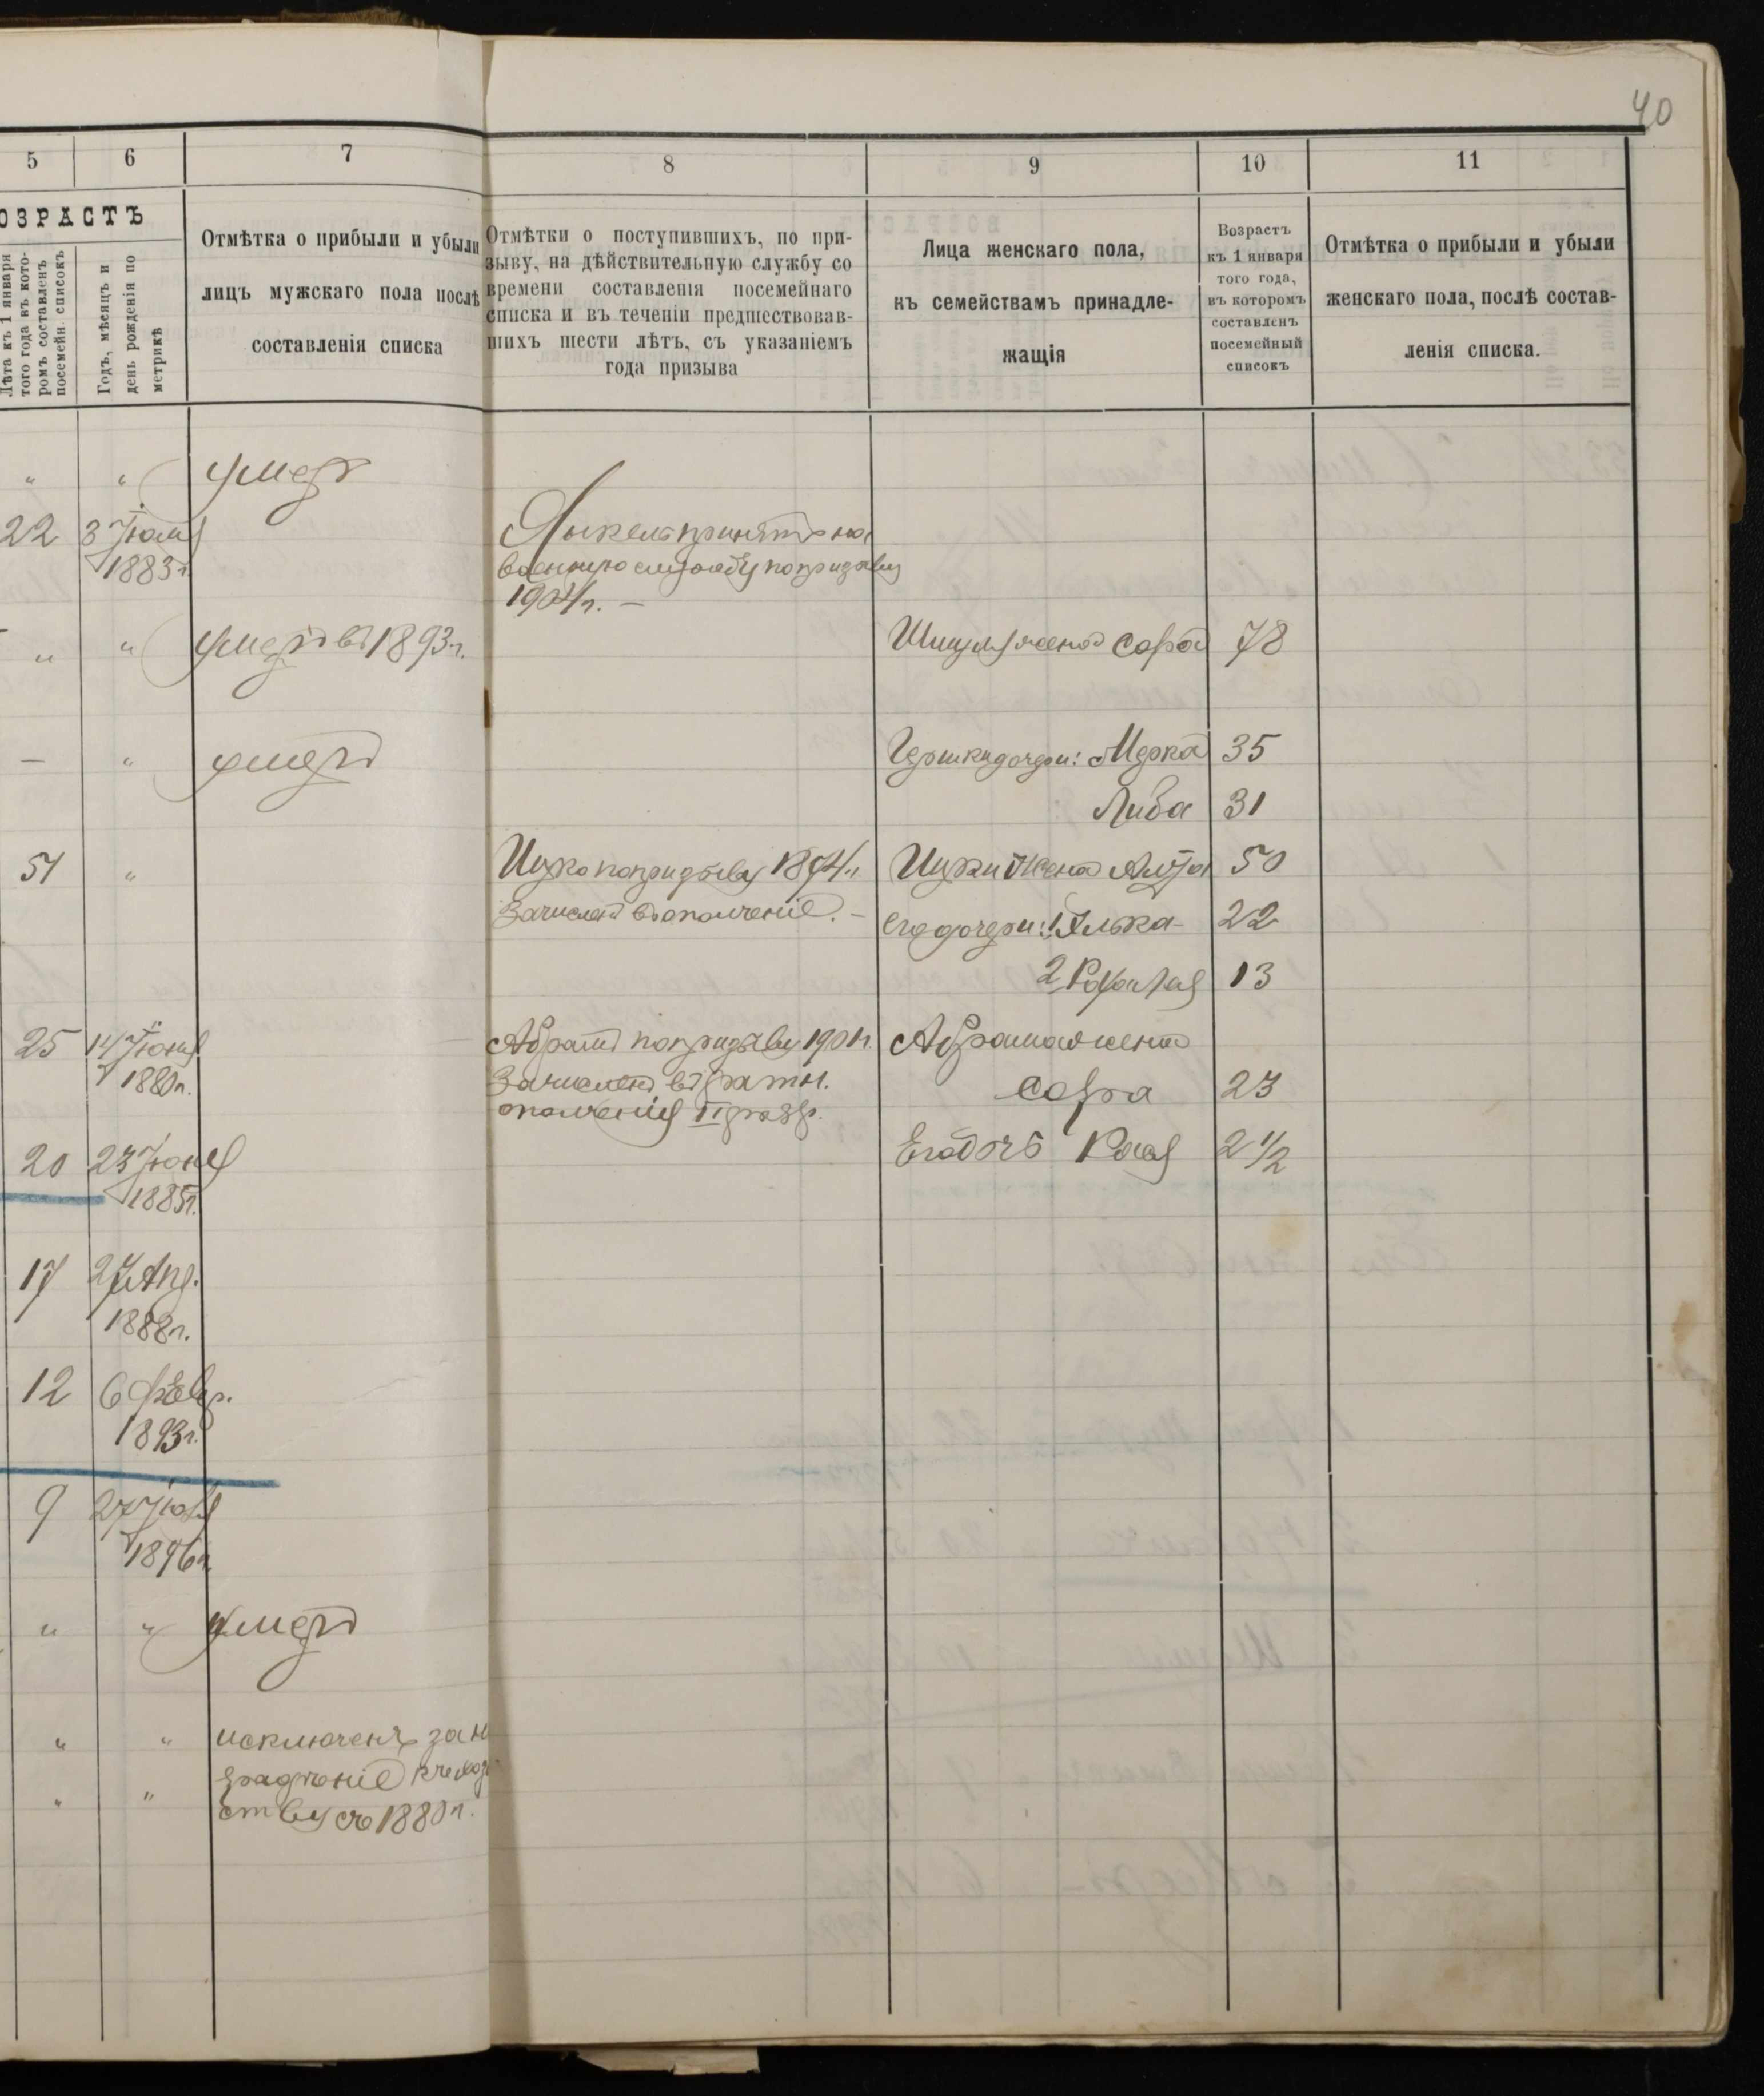 40
5 6 7 8 9 10 11
ОЗРАСТЪ
Лѣта къ 1 января
того года въ кото-
ромъ составленъ
посемейн. списокъ
Годъ, мѣсяцъ и
день рожденія по
метрикѣ
Отмѣтка о прибыли и убыли
лицъ мужскаго пола послѣ
составленія списка
Отмѣтки о поступившихъ, по при-
зыву, на дѣйствительную службу со
времени составленія посемейнаго
списка и въ теченіи предшествовав-
шихъ шести лѣтъ, съ указаніемъ
года призыва
Лица женскаго пола,
къ семействамъ принадле-
жащія
Возрастъ
къ 1 января
того года,
въ которомъ
составленъ
посемейный
списокъ
Отмѣтка о прибыли и убыли
женскаго пола, послѣ состав-
ленія списка.
" " умеръ
22 3
1883г.
принятъ на
военную службу по призыву
1904г. —
" " умеръ въ 1893г.
жена Сора 78
— " умеръ
Гершки дочери: Мерка 35
Либа 31
51 "
Ицко по призыву 1874г.
зачисленъ въ ополченіе. —
Ицки жена 50
его дочери: 1 Элька 22
2 13
25 14 Іюня
1880г.
Абрамъ по призыву 1901г.
зачисленъ въ ратн.
ополченія II разр.
Абрама жена
Сора 23
Его дочь Рася 2 1/2
20 23 Іюня
1885г.
17 27 Апр.
1888г.
12 6 Февр.
1893г.
9 27
1896г.
" " умеръ
" " исключенъ за н
" "
ству съ 1880г.